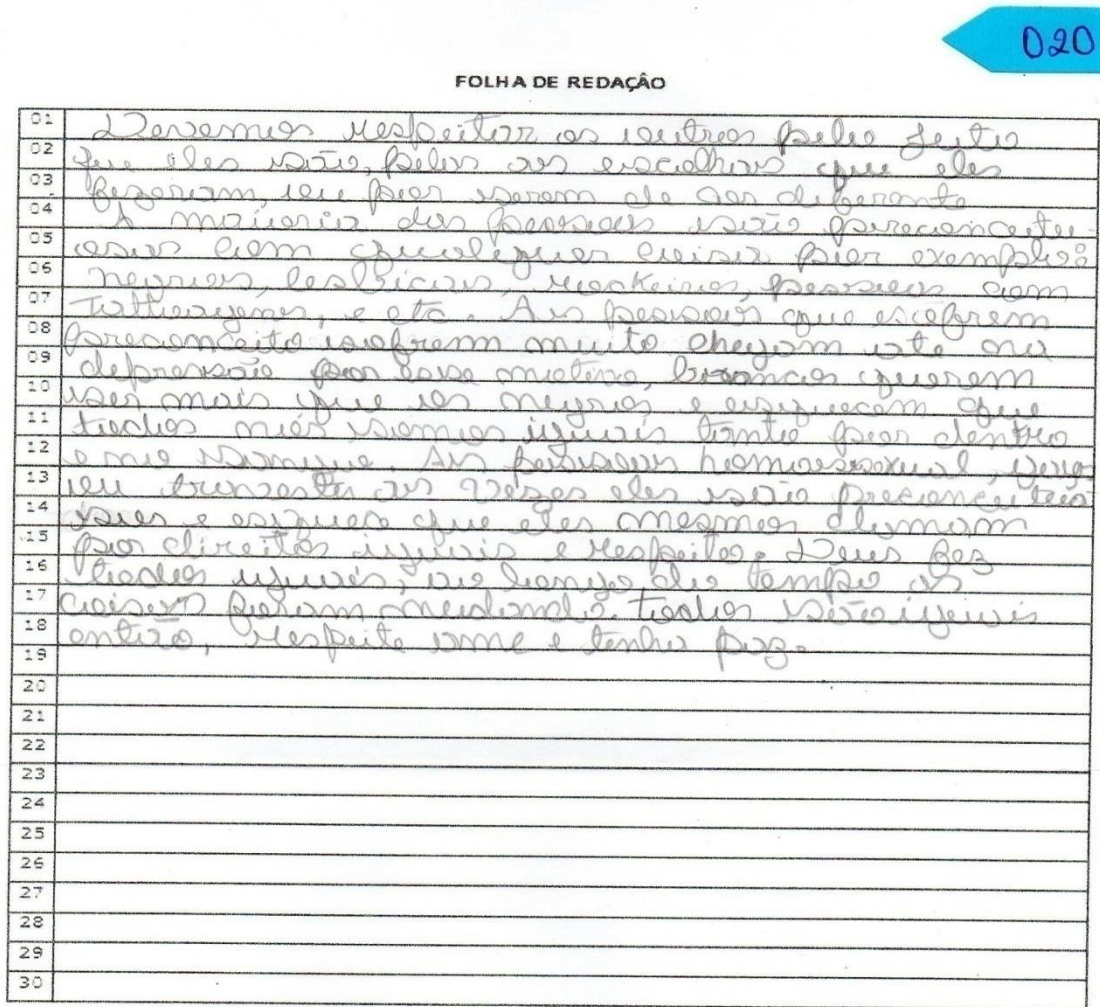 020
FOLHA DE REDAÇÃO
01 Devemos respeitar os outros pelo jeito
02 que eles são, pelos as escolhas que eles
03 fizeram, ou por serem de cor diferente
04 A maioria das pessoas são preconceitu-
05 osas com qualquer coisa por exemplo:
06 negros, lesbicas, rockeiros, pessoas com
07 tathuagens, e etc. As pessoas que sofrem
08 preconceito sofrem muito chegam até na
09 depressão por esse motivo, brancos querem
10 ser mais que os negros e esquecem que
11 todos nós somos iguais tanto por dentro
12 e no sangue. As pessoas homossexual,
13 ou as vezes eles são preconceituo
14 sos e esquece que eles mesmos
15 por direitos iguais e respeitos. Deus fez
16 todos iguais, ao longo do tempo as
17 coisas foram mudando. todos são iguais
18 então, respeite ame e tenha paz.
19
20
21
22
23
24
25
26
27
28
29
30